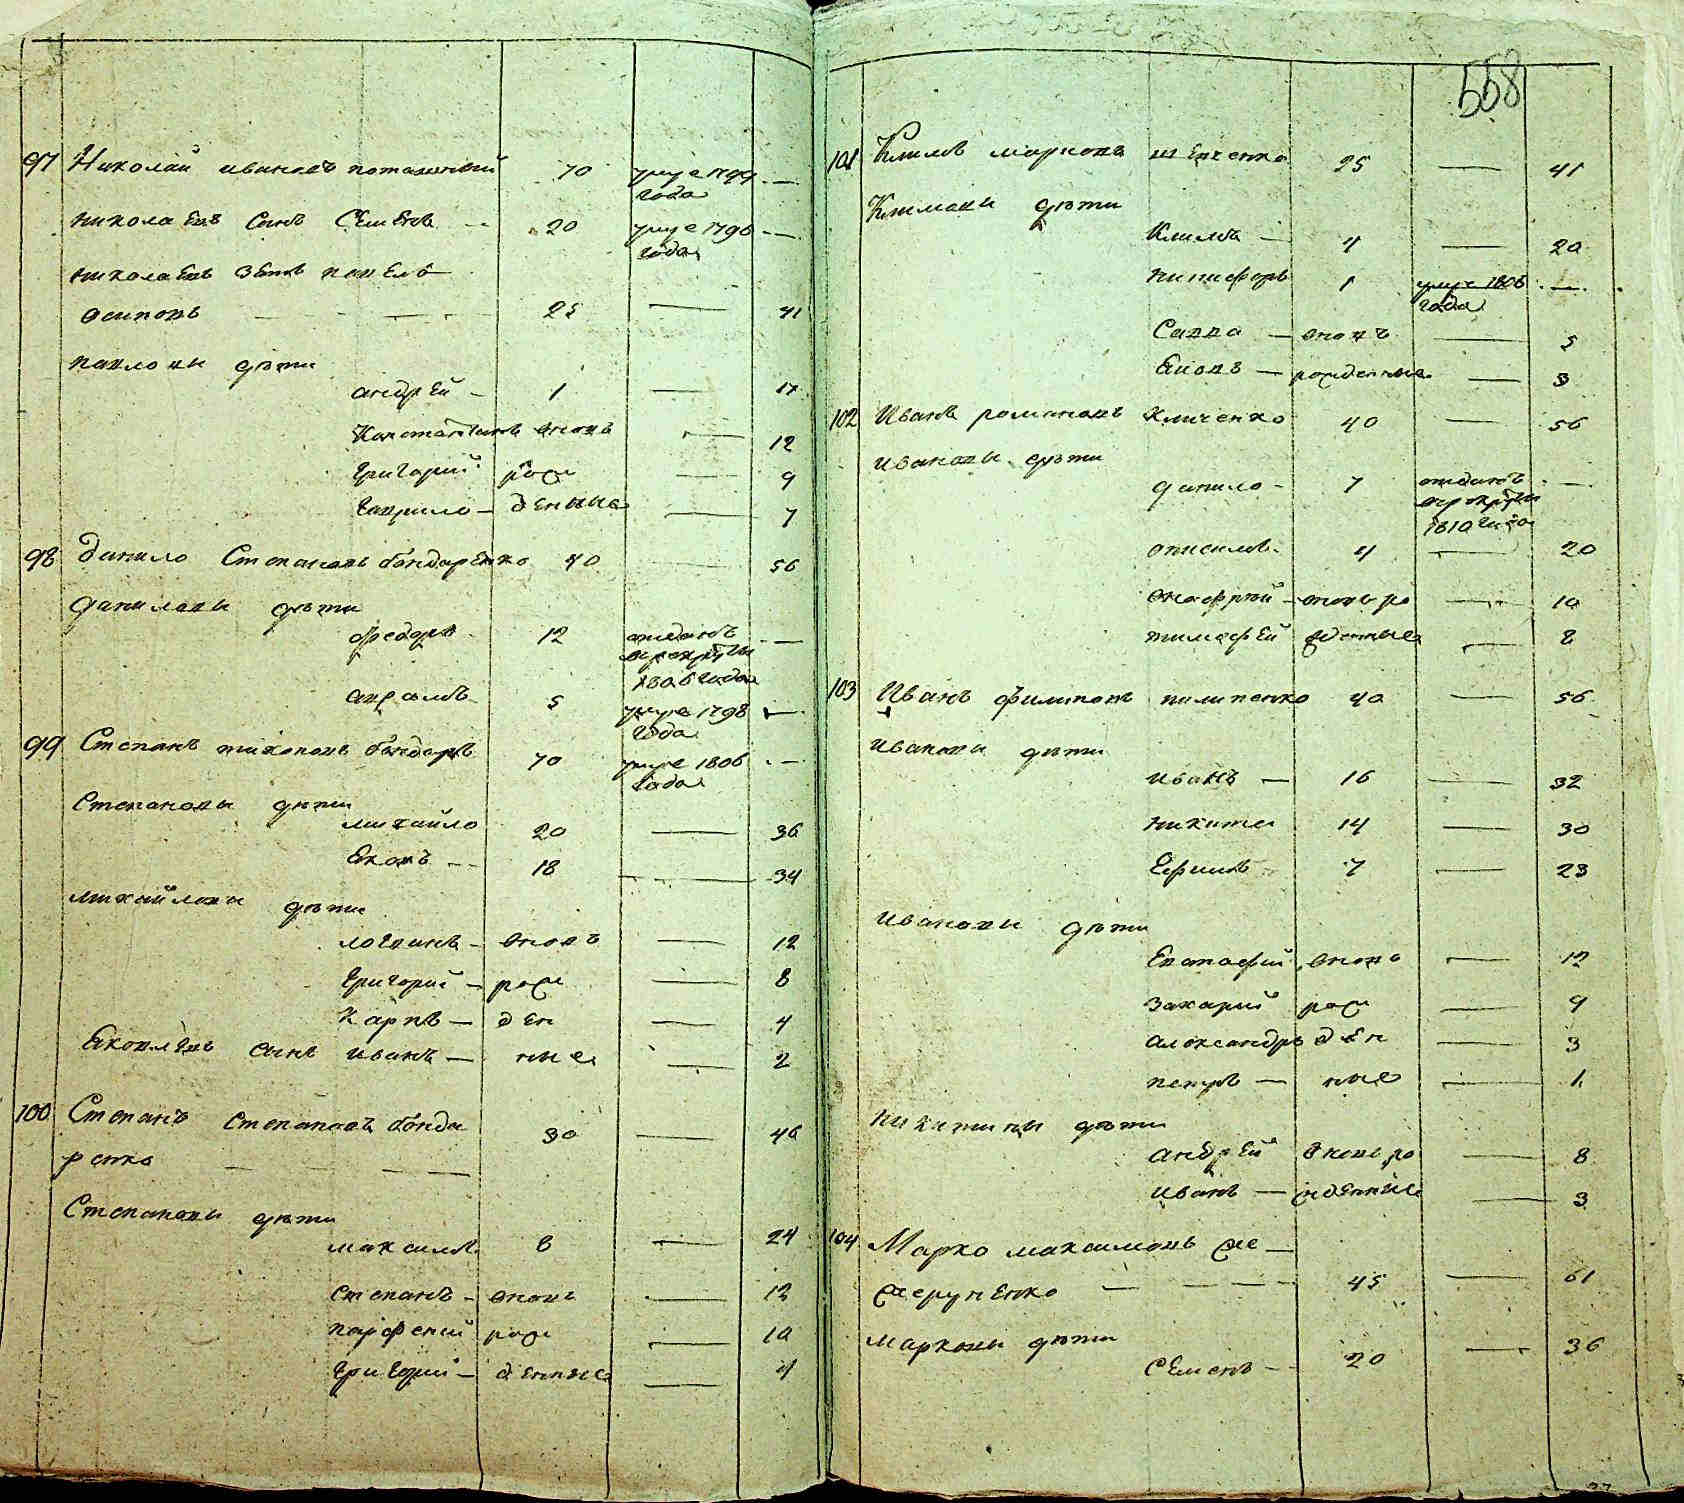 558
97 Николай ивановъ 70 умре 1799 —
года
николаевъ Сынъ Семенъ — 20 умре 1796 —
года
николаевъ зять павелъ
осиповъ — 25 — 41
павловы дѣти
андрей — 1 — 17
Константинъ вновь — 12
григорий рож — 9
гаврило — денные — 7
98 данило Степановъ бондаренко 40 — 56
даниловы дѣти
федоръ 12 отданъ —
врекруты
1806 года
5 умре 1798 —
года
99 Степанъ тихоновъ бондарь 70 умре 1806 —
года
Степановы дѣти
михайло 20 — 36
Яковъ — 18 — 34
михайловы дѣти
логвинъ — вновь — 12
григорий — рож — 8
карпъ — ден — 4
Яковлевъ сынъ иванъ — ные — 2
100 Степанъ Степановъ бонда 30 — 46
ренко — — —
Степановы дѣти
максимъ 8 — 24
степанъ — вновь — 12
парфений рож — 10
григорий — денные — 4
101 Климъ марковъ шевченко 25 — 41
Климовы дѣти
Климъ — 4 — 20
никифоръ 1 умре 1806 —
года
Савва — вновь — 5
Яковъ — рожденные — 3
102 Иванъ романовъ кличенко 40 — 56
ивановы дѣти
данило — 7 отданъ —
врекруты
1810 года
анисимъ — 4 — 20
онофрей — вновь ро — 10
тимофей жденные — 8
103 Иванъ филиповъ пилипенко 40 — 56
ивановы дѣти
иванъ — 16 — 32
никита 14 — 30
Ефимъ 7 — 23
ивановы дѣти
Евстафий вновь — 12
захарий рож — 9
александръ ден — 3
петръ — ные — 1
никитины дѣти
андрей вновь ро — 8
иванъ — жденные — 3
104 Марко максимовъ же —
жеруненко — — — 45 — 61
марковы дѣти
Семенъ — 20 — 36